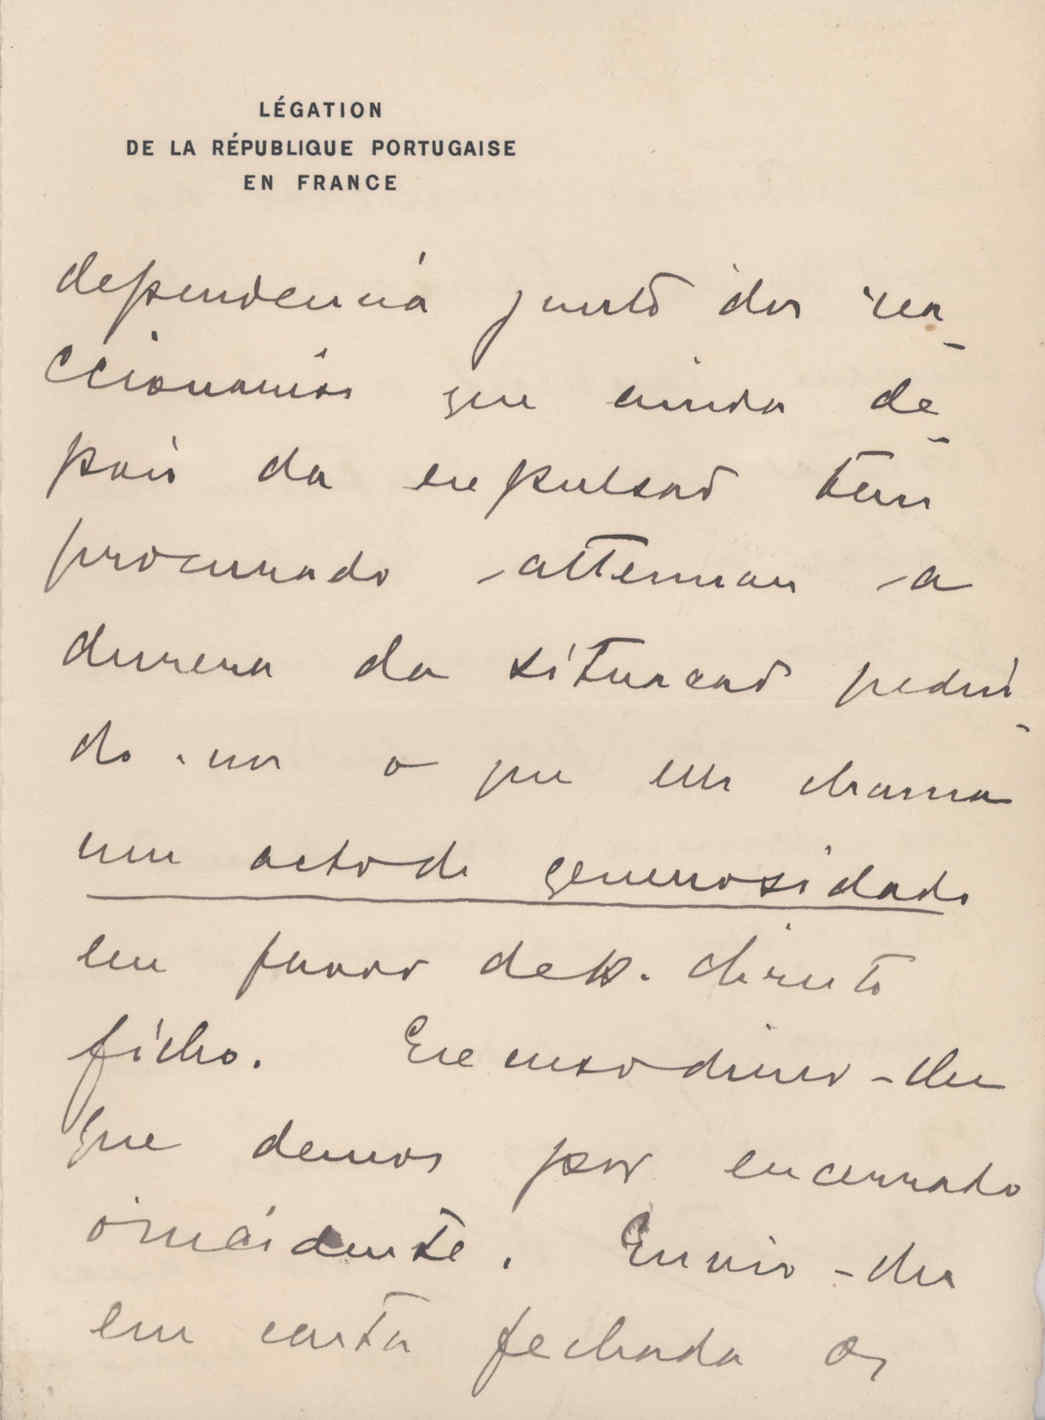 LÉGATION
DE LA RÉPUBLIQUE PORTUGAISE
EN FRANCE
dependencia junto dos rea-
ccionarios que ainda de-
pois da expulsaõ tem
procurado attenuar a
dureza da situacaõ pedin-
do-nos o que elle chama
um acto de generosidade
em favor de
ficho. Excuso dizer-lhe
que demos por encerrado
o incidente. Envio-lhe
em carta fechada os